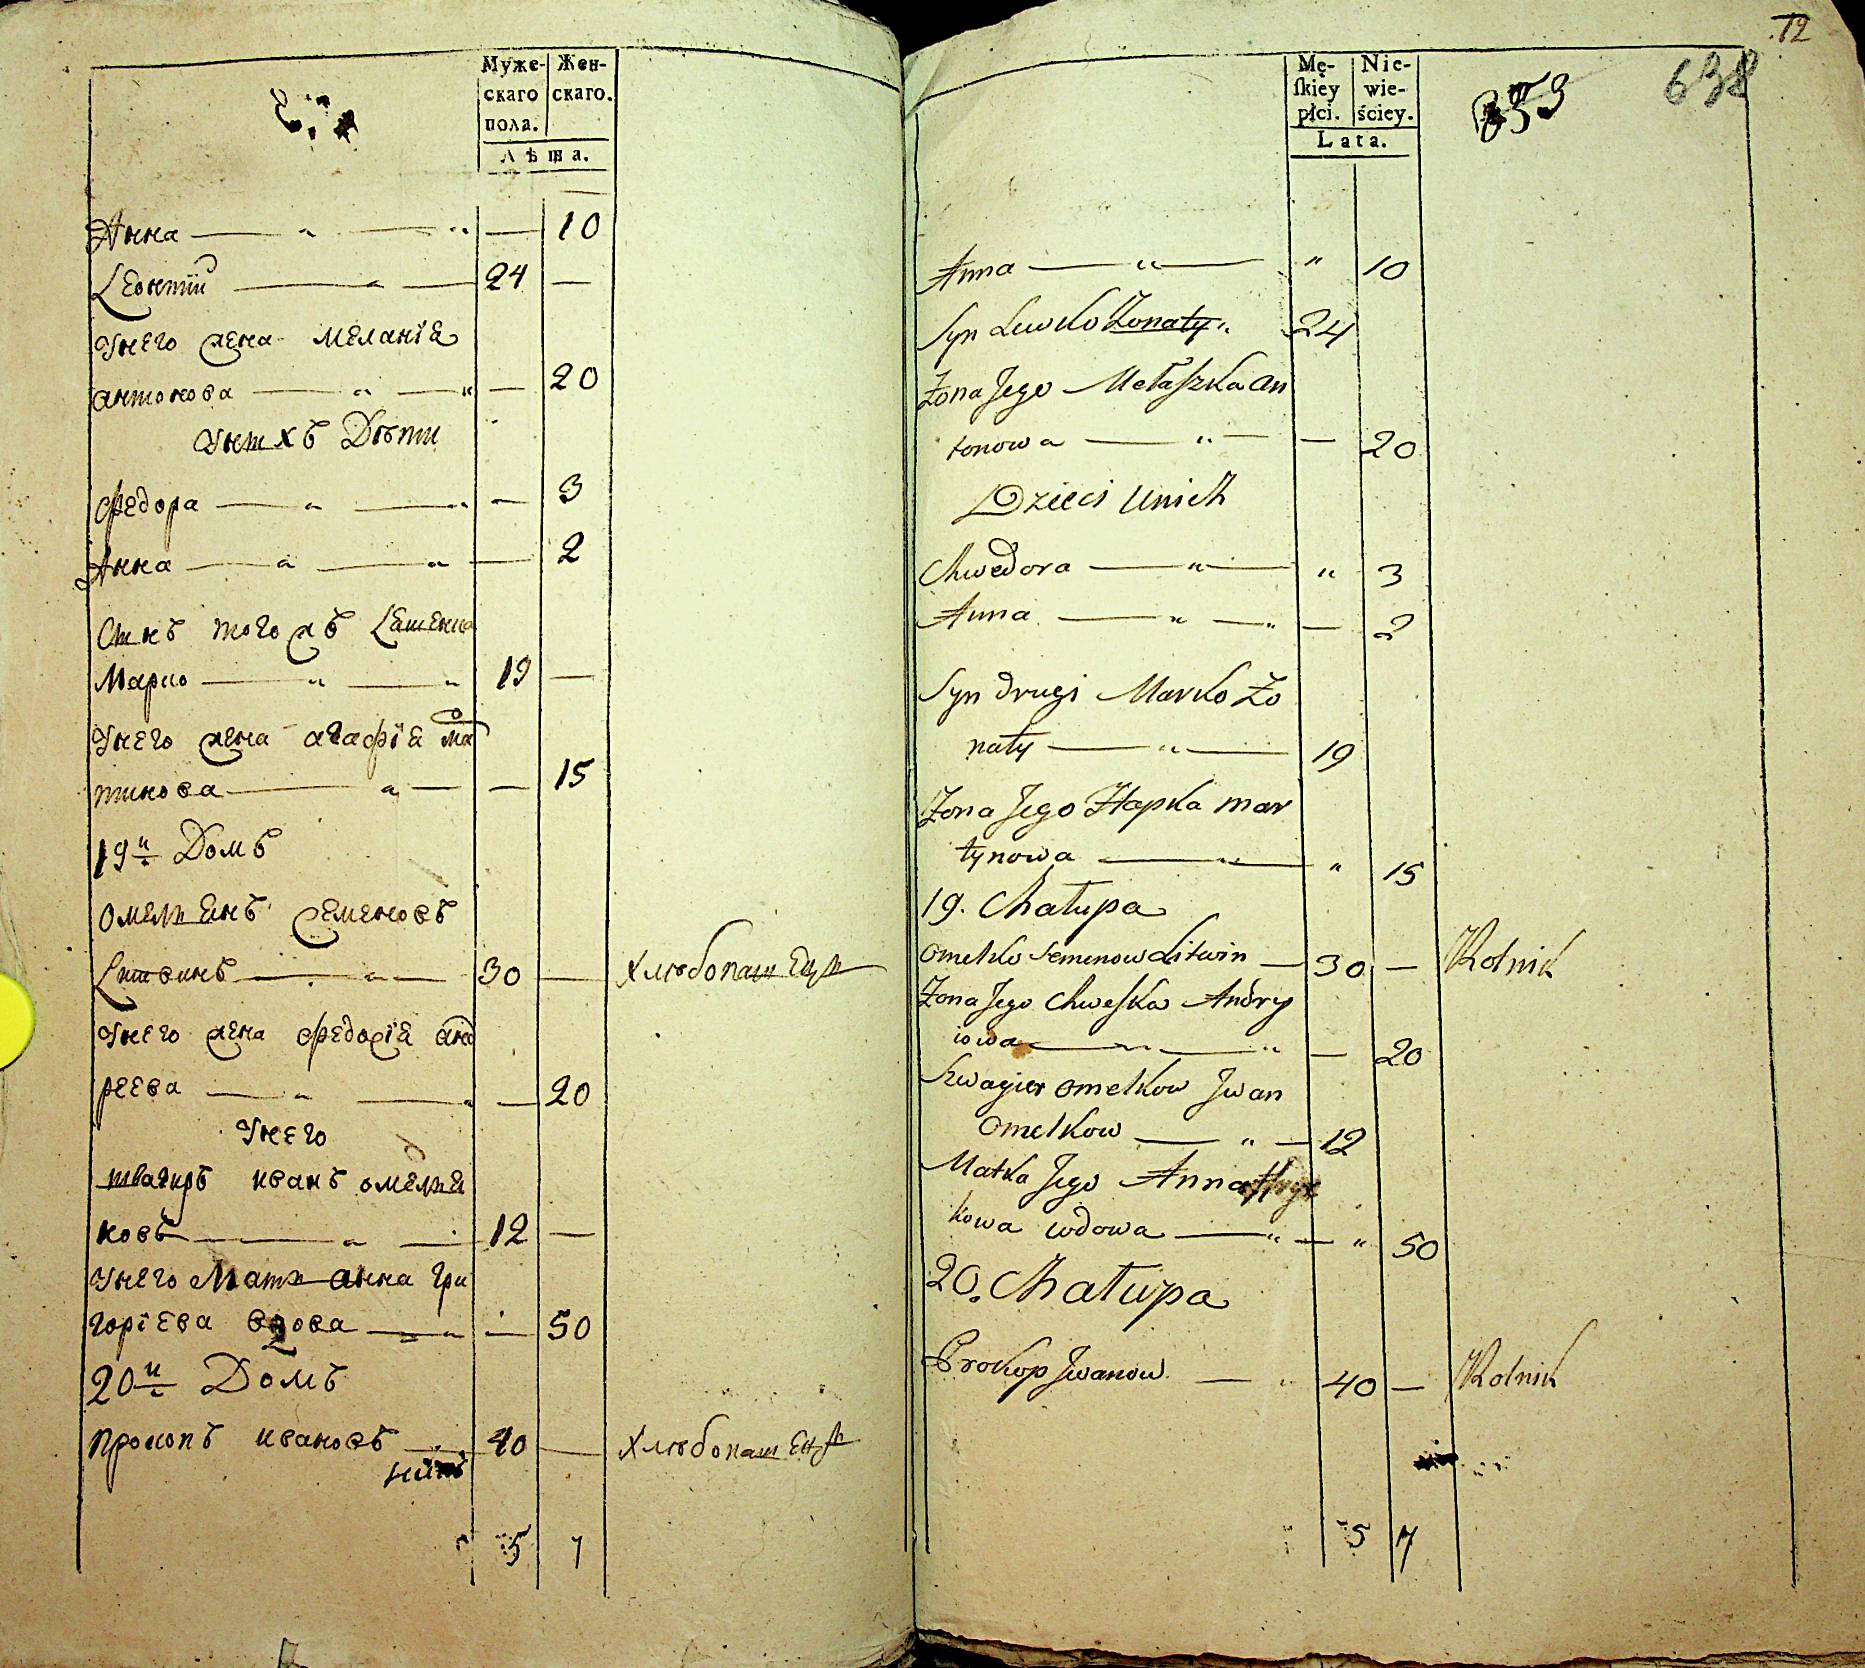 Муже-
скаго
пола.
Жен-
скаго.
Лѣта.
Анна — „ — „ — 10
Леонтїй — „ — 24 —
Унего жена Меланїя
антонова — „ — „ — 20
Унихъ Дѣти
Федора — „ — „ — 3
Анна — „ — „ — 2
Сынъ того жъ
Марко — „ — „ 19 —
Унего жена агафїя Ма
тинова — „ — — 15
19й Домъ
Омелянъ Семеновъ
Литвинъ — „ — 30 — Хлѣбопашецъ
Унего жена Федосїя анд
реева — „ — „ — 20
Унего
швагиръ иванъ омеля
новъ — „ — 12 —
Унего Мать анна гри
горїева вдова — „ — 50
20й Домъ
прокопъ ивановъ — „ 40 — Хлѣбопашецъ
5 7
12
638
353
Mę-
ſkiey
płci.
Nie-
wie-
ściey.
Lata.
Anna — „ — „ 10
Syn Lewko Żonaty „ 24
Żona Jego Metaſzka an
tonowa — „ — — 20
Dzieci Unich
Chwedora — „ — „ 3
Anna — „ — „ — 2
Syn drugi Marko Żo
naty — „ — 19
Żona Jego Hapka mar
tynowa — „ — „ 15
19. Chałupa
Omelko Semenow Litwin — 30 — Rolnik
Żona Jego Chweſka Andry
iowa — „ — „ — 20
Szwagier omelkow Jwan
Omelkow — „ — 12
Matka Jego Anna Hryt
kowa wdowa — „ — „ 50
20. Chałupa
Prokop Jwanow — „ 40 — Rolnik
5 7